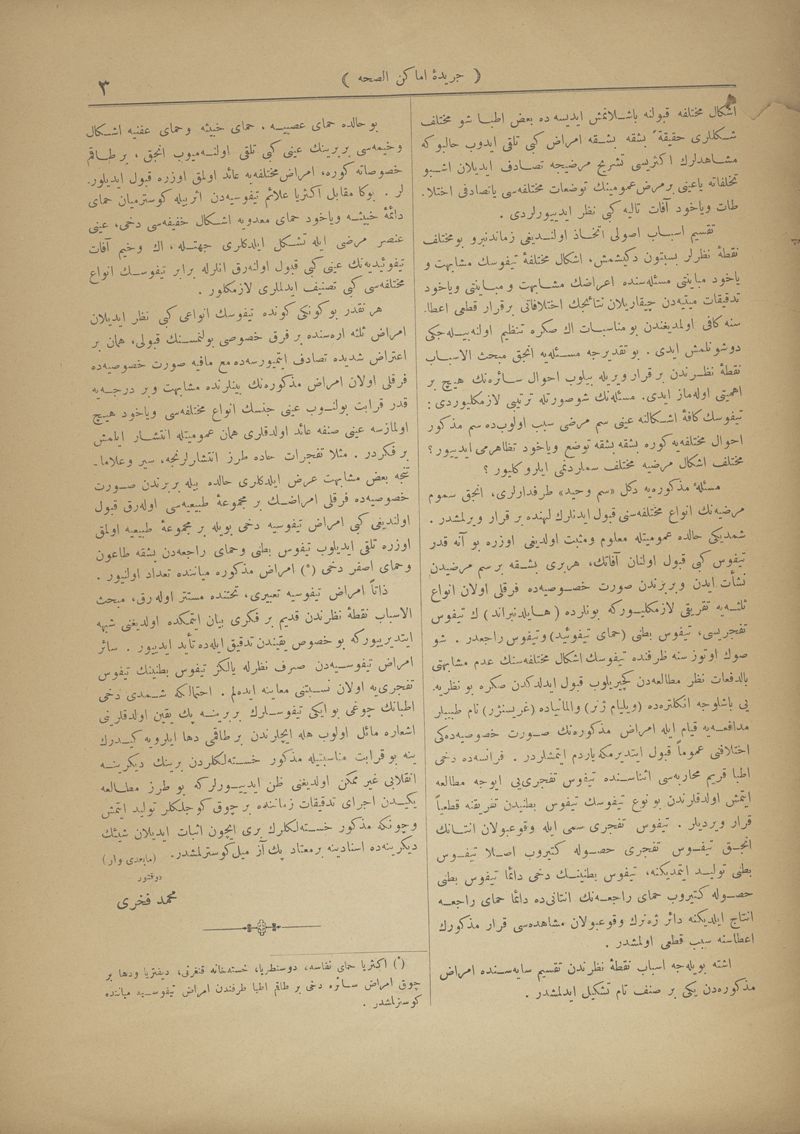 ( جریدهٔ اماکن الصحه )
٣
اشکال مختلفه قبولنه باشلانمش ایدیسه ده بعض اطبا شو مختلف
شکللری حقیقةً بشقه بشقه امراض کبی تلقی ایدوب حالبوکه
مشاهدلرك اکثریسی تشریح مرضیجه تصادف ایدیلان اشبو
تخلفاته یاعینی برمرض عمومینك توضعات مختلفه‌سی یاتصادفی اختلا۔
طات ویاخود آفات تالیه کبی نظر ایدییورلردی .
تقسیم اسباب اصولی اتخاذ اولندیغی زماندنبرو بومختلف
نقطهٔ نظرلر بستون دکیشمش، اشکال مختلفهٔ تیفوسك مشابهت و
یاخود مباینتی مسئله‌سنده اعراضك مشابهت و مباینتی ویاخود
تدقیقات میتیه‌دن چیقاریلان نتائجك اختلافاتی برقرار قطعی اعطا۔
سنه کافی اولمدیغندن بو مناسبات اك صکره تنظیم اولنه‌بیله‌جکی
دوشونلمش ایدی . بوتقدیرجه مسئله‌یه انجق مبحث الاسباب
نقطهٔ نظرندن بر قرار ویریله بیلوب احوال سائره‌نك هیچ بر
اهمیتی اوله‌ماز ایدی. مسئله‌نك شوصورتله ترتیبی لازمکلیوردی :
تیفوسك کافهٔ اشکالنه عینی سم مرضی سبب اولوب‌ده سم مذکور
احوال مختلفه‌یه کوره بشقه بشقه توضع ویاخود تظاهرمی ایدییور ؟
مختلف اشکال مرضیه مختلف سملردنمی ایلروکلیور ؟
مسئلهٔ مذکوره‌یه دکل «سم وحید» طرفدارلری، انجق سموم
مرضیه‌نك انواع مختلفه‌سنی قبول ایدنلرك لهنده بر قرار ویرلمشدر .
شمدیکی حالده عمومیتله معلوم ومثبت اولدیغی اوزره بو آنه قدر
تیفوس کبی قبول اولنان آفاتك، هربری بشقه برسم مرضیدن
نشأت ایدن وبربرندن صورت خصوصیه‌ده فرقلی اولان انواع
ثلثه‌یه تفریقی لازمکلیورکه بونلرده (هایلدنبراند) ك تیفوس
تفجریسی، تیفوس بطنی (حمای تیفوئید) وتیفوس راجعدر . شو
صوك اوتوز سنه ظرفنده تیفوسك اشکال مختلفه‌سنك عدم مشابهتی
بالدفعات نظر مطالعه‌دن کچیریلوب قبول ایدلدکدن صکره بو نظریه۔
یی باشلوجه انکلتره‌ده (ویلیام ژنر) والمانیاده (غریسنژر) نام طبیبلر
مدافعه‌یه قیام ایله امراض مذکوره‌نك صورت خصوصیه‌ده‌کی
اختلافنی عموماً قبول ایتدیرمکه یاردم ایتمشلردر . فرانسه‌ده دخی
اطبا قریم محاربه‌سی اثناسنده تیفوس تفجری‌یی ایوجه مطالعه
ایتمش اولدقلرندن بو نوع تیفوسك تیفوس بطنیدن تفریقنه قطعیاً
قرار ویردیلر . تیفوس تفجری سمی ایله وقوعبولان انتانك
انجق تیفوس تفجری حصوله کتیروب اصلا تیفوس
بطنی تولید ایتمدیکنه، تیفوس بطنینك دخی دائما تیفوس بطنی
حصوله کتیروب حمای راجعه‌نك انتانی‌ده دائما حمای راجعه
انتاج ایلدیکنه دائر ژه‌نرك وقوعبولان مشاهده‌سی قرار مذکورك
اعطاسنه سبب قطعی اولمشدر .
اشته بویله‌جه اسباب نقطهٔ نظرندن تقسیم سایه‌سنده امراض
مذکوره‌دن یکی بر صنف تام تشکیل ایدلمشدر .
بو حالده حمای عصبیه ، حمای خبیثه وحمای عفنیه اشکال
وخیمه‌سی بربرینك عینی کبی تلقی اولنه‌میوب انجق ، بر طاقم
خصوصاته کوره، امراض مختلفه‌یه عائد اولمق اوزره قبول ایدیلور۔
لر . بوکا مقابل اکثریا علائم تیفوسیه‌دن اثر بیله کوسترمیان حمای
دائمهٔ خبیثه ویاخود حمای معدویه اشکال خفیفه‌سی دخی، عینی
عنصر مرضی ایله تشکل ایلدکلری جهتله، اك وخیم آفات
تیفوئیدیه‌نك عینی کبی قبول اولنه‌رق انلرله برابر تیفوسك انواع
مختلفه‌سی کبی تصنیف ایدلملری لازمکلور .
هر نقدر بوکونکی کونده تیفوسك انواعی کبی نظر ایدیلان
امراض ثلثه اره‌سنده بر فرق خصوصی بولنمسنك قبولی، همان بر
اعتراض شدیده تصادف ایتمیورسه‌ده مع مافیه صورت خصوصیه‌ده
فرقلی اولان امراض مذکوره‌نك بینلرنده مشابهت وبر درجه‌یه
قدر قرابت بولنوب عینی جنسك انواع مختلفه‌سی ویاخود هیچ
اولمازسه عینی صنفه عائد اولدقلری همان عمومیتله انتشار ایلمش
بر فکردر . مثلا تفجرات حاده طرز انتشارلرنجه، سیر وعلاما۔
تجه بعض مشابهت عرض ایلدکلری حالده بیله بربرندن صورت
خصوصیه‌ده فرقلی امراضك بر مجموعهٔ طبیعیه‌سی اوله‌رق قبول
اولندیغی کبی امراض تیفوسیه دخی بویله بر مجموعهٔ طبیعیه اولمق
اوزره تلقی ایدیلوب تیفوس بطنی وحمای راجعه‌دن بشقه طاعون
وحمای اصفر دخی (*) امراض مذکوره میاننده تعداد اولنیور .
ذاتاً امراض تیفوسیه تعبیری، تحتنده مستتر اوله‌رق، مبحث
الاسباب نقطهٔ نظرندن قدیم بر فکری بیان ایتمکده اولدیغنی شبهه
ایتدیرییورکه بو خصوص یقیندن تدقیق ایله‌ده تأید ایدییور . سائر
امراض تیفوسیه‌دن صرف نظرله یالکز تیفوس بطنینك تیفوس
تفجری‌یه اولان نسبتی معاینه ایده‌لم . احتمالکه شمدی دخی
اطبانك چوغی بوایکی تیفوسلرك بربرینه پك یقین اولدقلرنی
اشعاره مائل اولوب هله ایچلرندن برطاقمی دها ایلرویه کیدرك
ینه بو قرابت مناسبتیله مذکور خسته‌لکلردن برینك دیکرینه
انقلابی غیر ممکن اولدیغنی ظن ایدییورلرکه بو طرز مطالعه
یکیدن اجرای تدقیقات زماننده بر چوق کوجلکلر تولید ایتمش
وچونکه مذکور خسته‌لکلرك بری ایچون اثبات ایدیلان شیئك
دیکرینه‌ده اسنادینه برمعتاد پك آز میل کوسترلمشدر. (مابعدی وار)
دوقتور
محمد فخری
(*) اکثریا حمای نفاسه، دوسنطریا، خسته‌خانه قنغرنی، دیفتریا ودها بر
چوق امراض سائره دخی بر طاقم اطبا طرفندن امراض تیفوسیه میاننده
کوسترلمشدر .